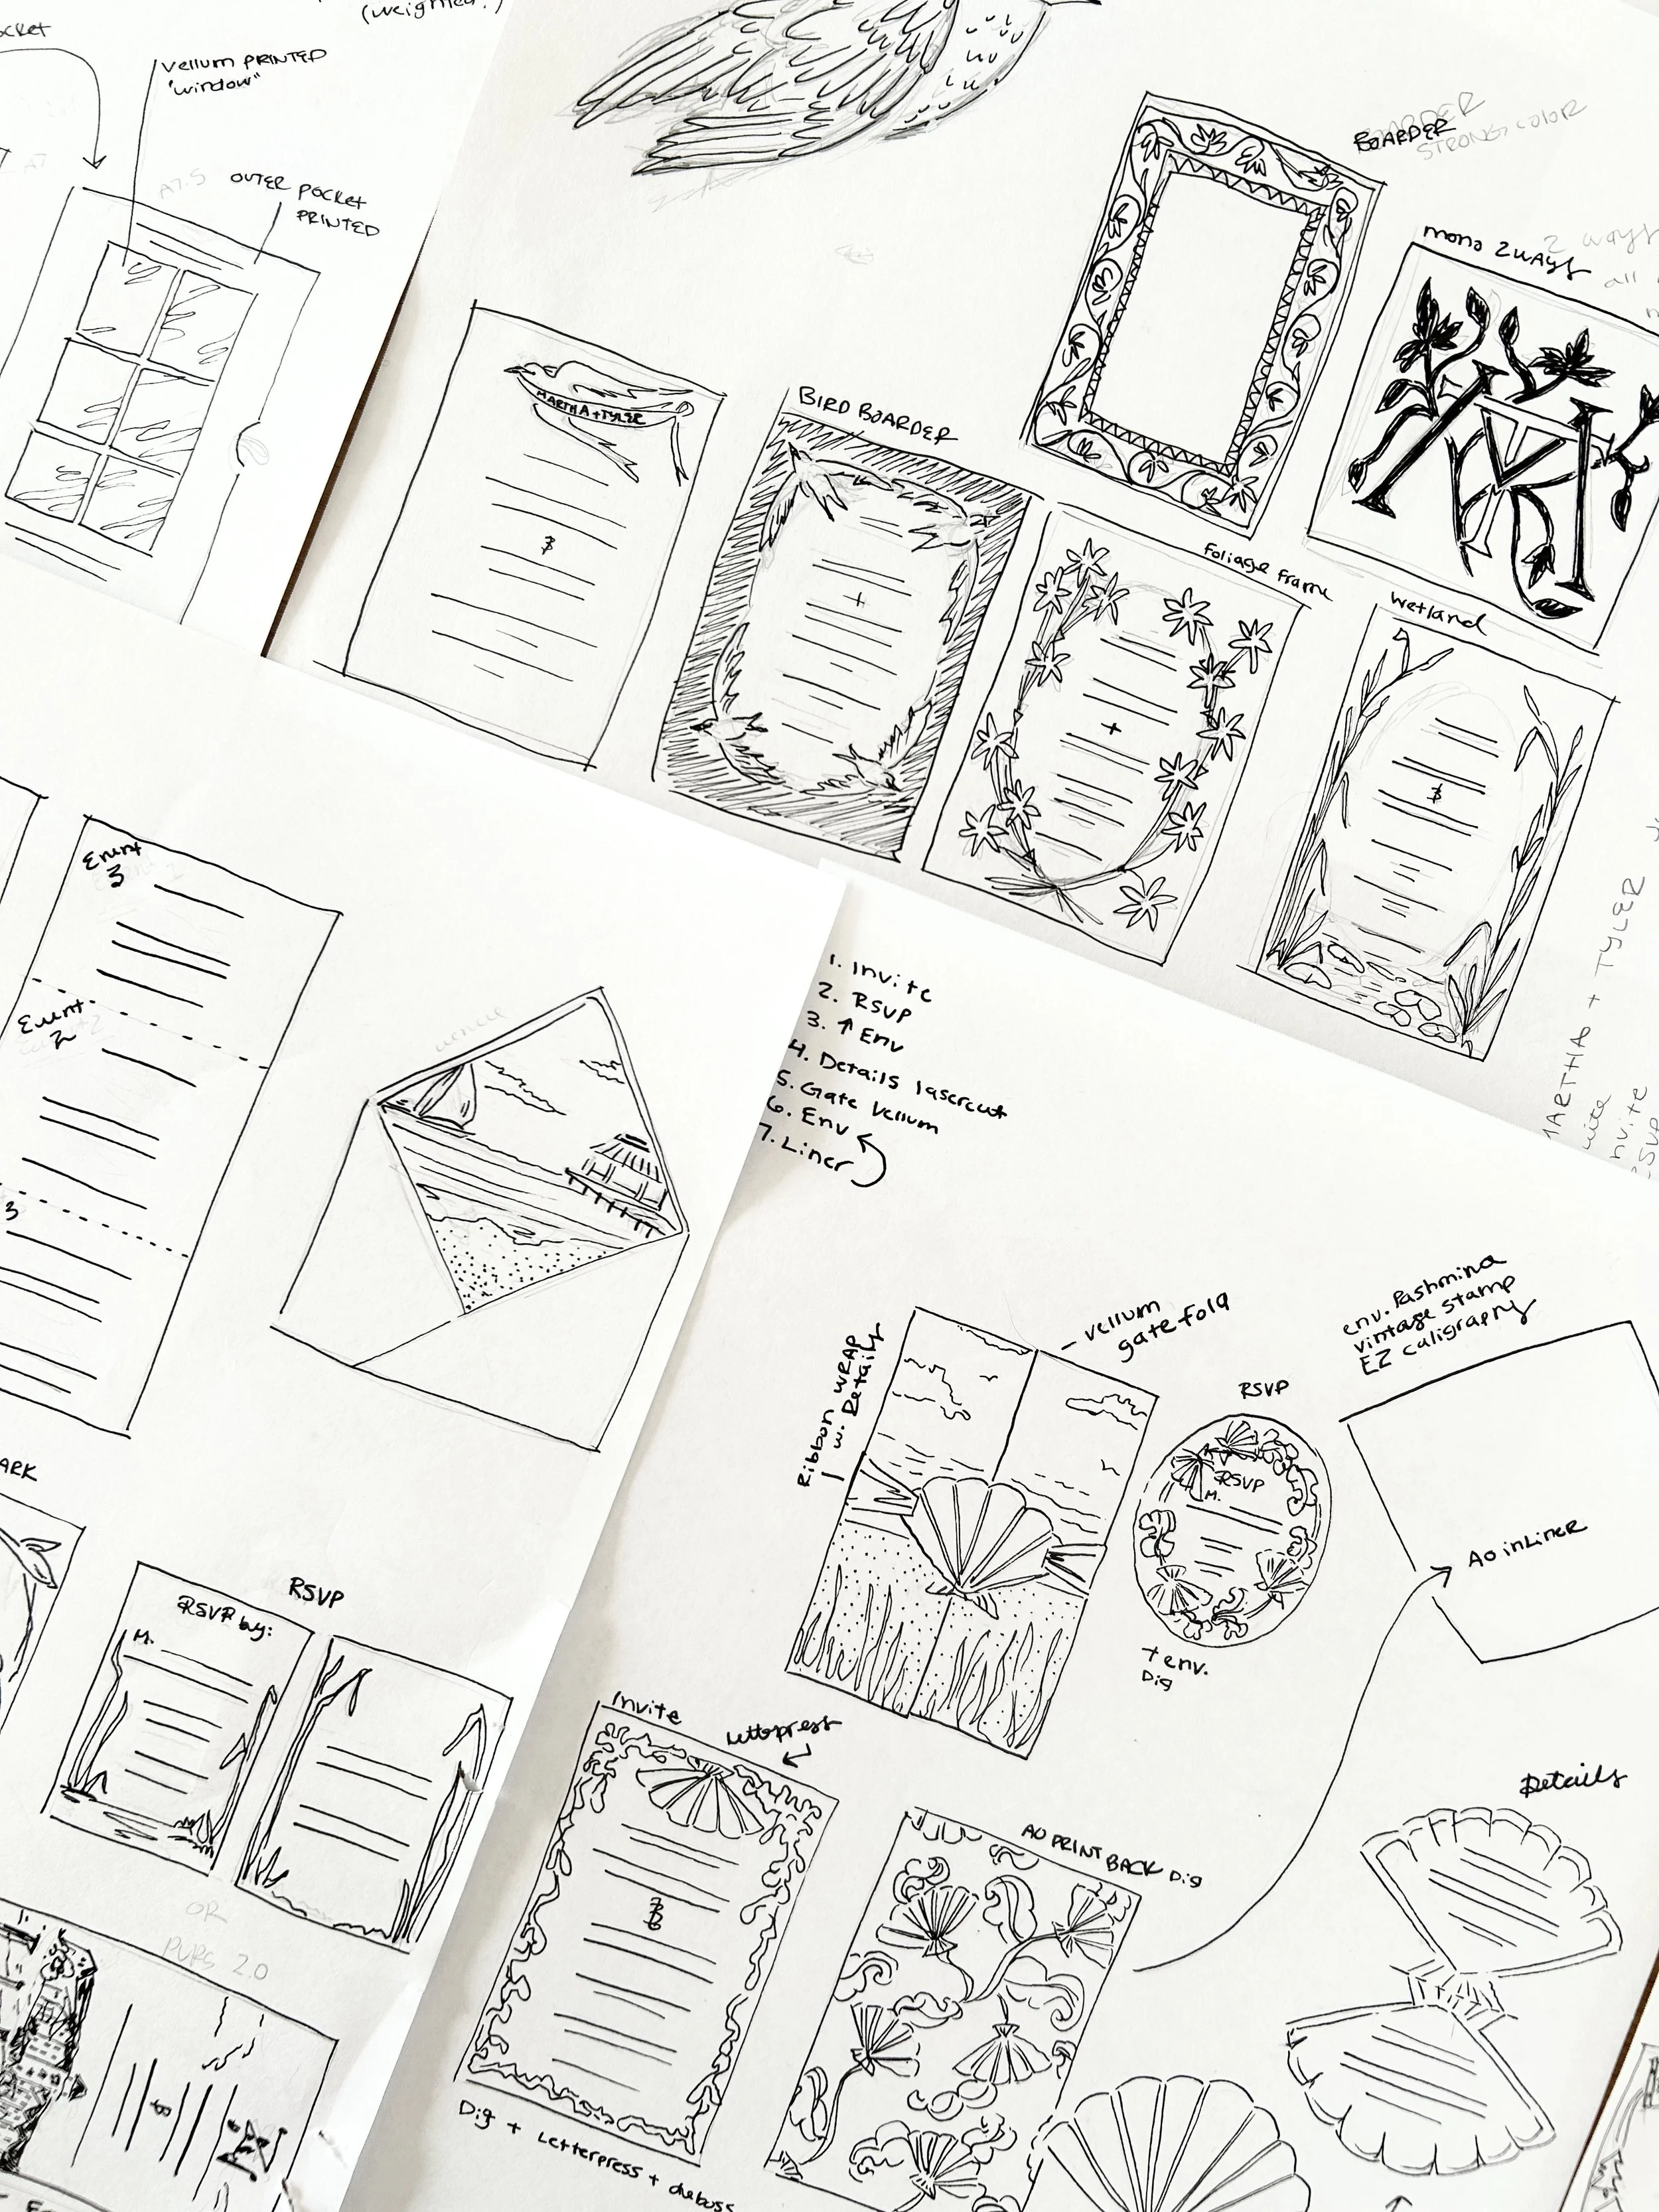 (weighted?)
ocket
vellum PRINTED
"window"
A7.5
OUTER POCKET
PRINTED
BOARDER
STRONG COLOR
mono 2 ways
2 ways
all
MARTHA + TYLER
BIRD BOARDER
Foliage Frame
wetland
MARTHA + TYLER
invite
RSVP
Event
3
Event
2
3
1. Invite
2. RSVP
3. ↑ Env
4. Details lasercut
5. Gate Vellum
6. Env
7. Liner
vellum
gate fold
Ribbon WRAP
w. Details
RSVP
RSVP
M.
+ env.
Dig
env. Pashmina
vintage stamp
EZ caligraphy
AO in LINER
ARK
RSVP
RSVP by:
M.
OR
PURS 2.0
Invite
Letterpress
AO PRINT BACK Dig
Details
Dig + Letterpress + deboss